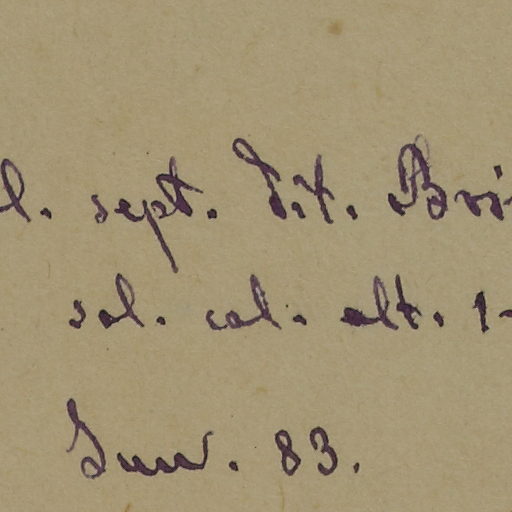 l. sept. dit. Bri
sol. cal. alt. 1-
Jun. 83.